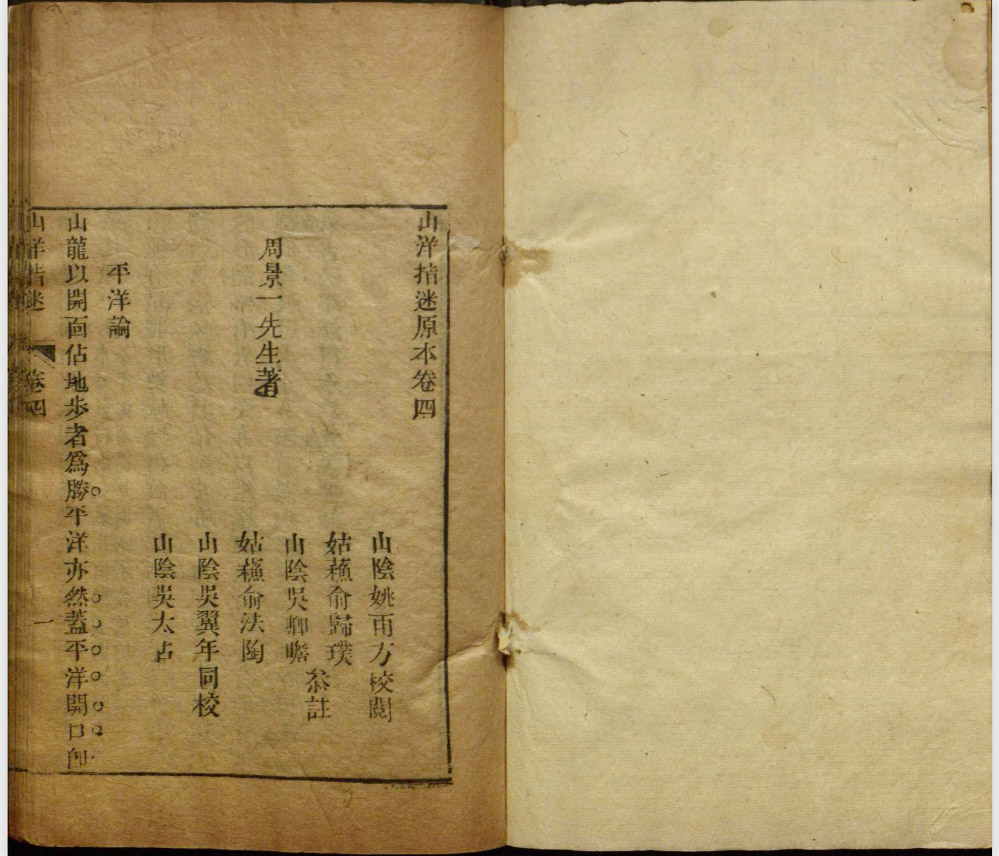 山洋指迷原本卷四
山陰姚雨方校閱
姑蘓俞歸璞
山陰吳卿瞻
叅註
周景一先生著
姑蘓俞法陶
山陰吳翼年同校
山陰吳太占
平洋論
山龍以開面佔地步者爲勝平洋亦然蓋平洋開口卽
山洋指迷 卷四 一